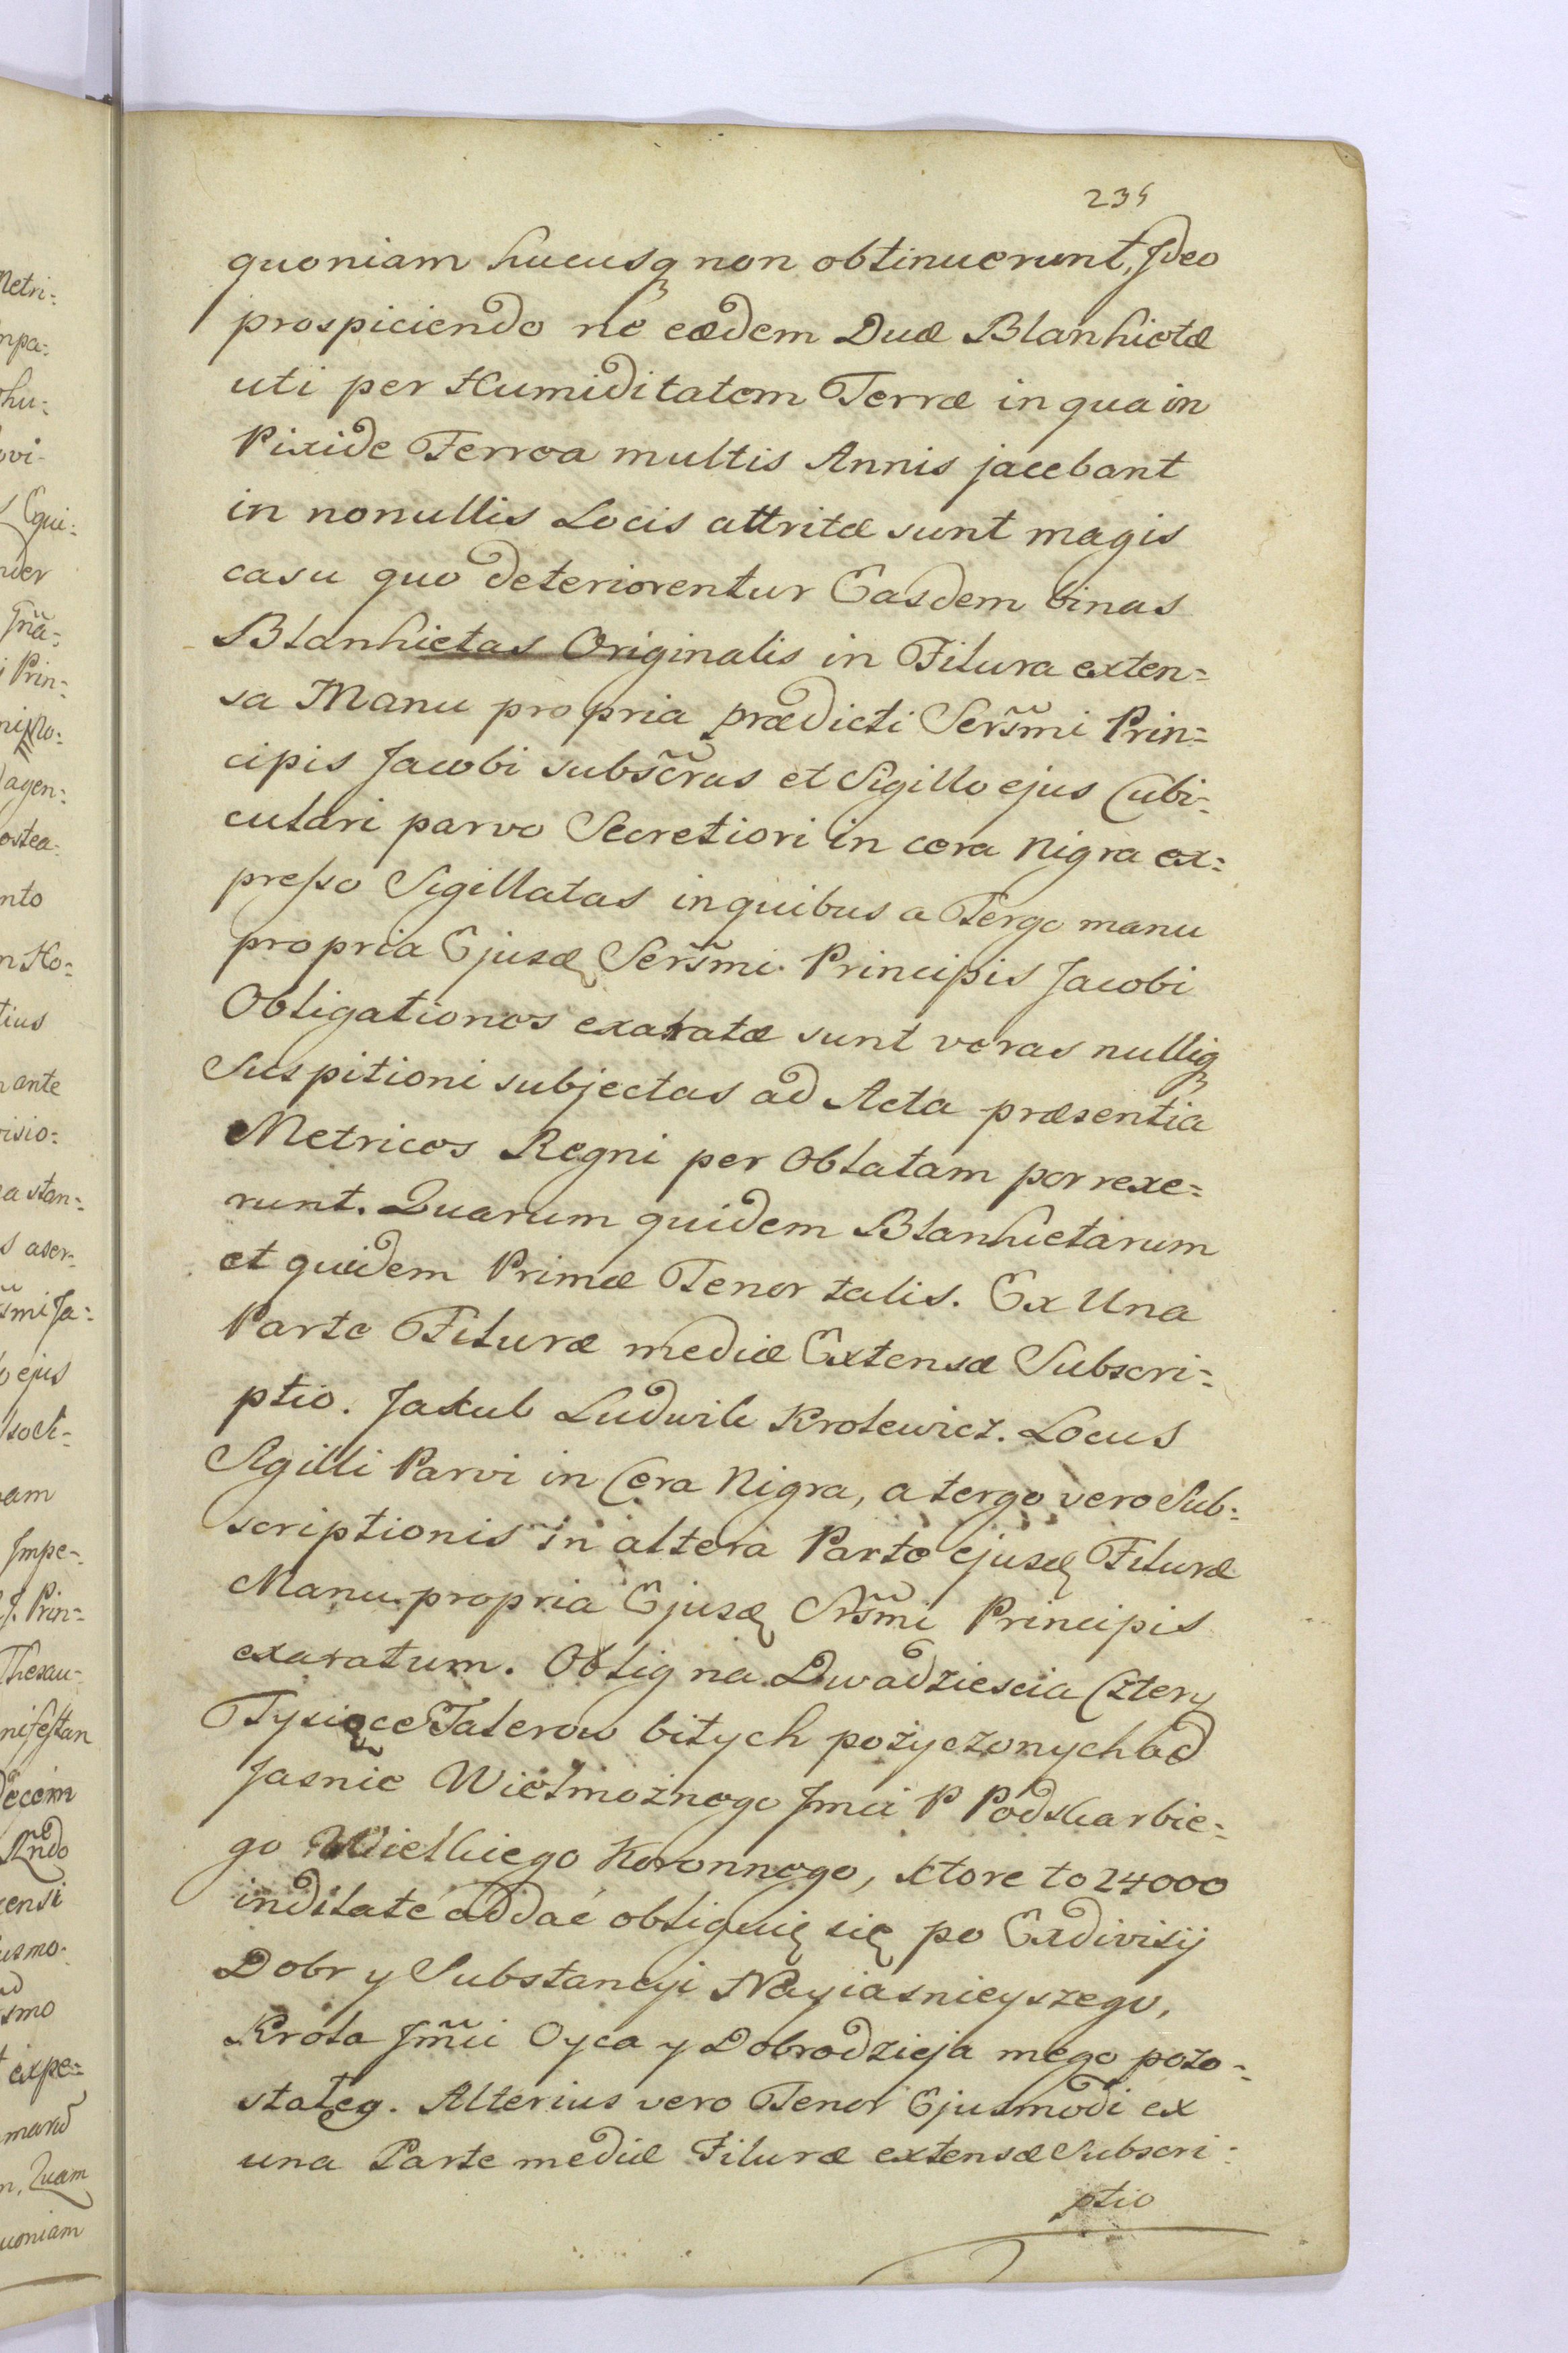 235
quoniam hucusq non obtinuerunt, Ideo
prospiciendo ne eædem Duæ Blankietæ
uti per Humiditatem Terræ in qua in
Pixide Ferrea multis Annis jacebant
in nonullis Locis attritæ sunt magis
casu quo deteriorentur Easdem binas
Blankietas Originalis in Filura exten=
sa Manu propria prædicti Sersm̃i Prin=
cipis Jacobi subsc̃ras et Sigillo ejus Cubi=
culari parvo Secretiori in cera nigra ex=
presso Sigillatas in quibus a Tergo manu
propria Ejusd Sersm̃i Principis Jacobi
Obligationes exaratæ sunt veras nulliq
Suspitioni subjectas ad Acta præsentia
Metricos Regni per Oblatam porrexe=
runt. Quarum quidem Blankietarum
et quidem Primæ Tenor talis. Ex Una
Parte Filuræ mediæ Extensæ Subscri=
ptio. Jakub Ludwik Krolewicz. Locus
Sigilli Parvi in Cera Nigra, a tergo vero Sub=
scriptionis in altera Parte ejusd Filuræ
Manu propria Ejusd Srsm̃i Principis
exaratum. Oblig na Dwadziescia Cztery
Tysiące Talerow bitych pożyczonych od
Jasnie Wielmożnego Jmci P Podskarbie=
go Wielkiego Koronnego, ktore to 24000
indilate oddać obliguię się po Exdivisij
Dobr y Substancyi Nayiasnieyszego,
Krola Jm̃ci Oyca y Dobrodzieja mego pozo=
stałeg. Alterius vero Tenor Ejusmodi ex
una Parte mediæ Filuræ extensæ Subscri=
ptio